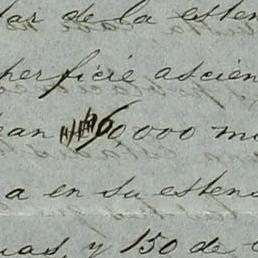 tar de la esten
perficie ascien
ean 60,000 mi
a en su estens
uas, y 150 de